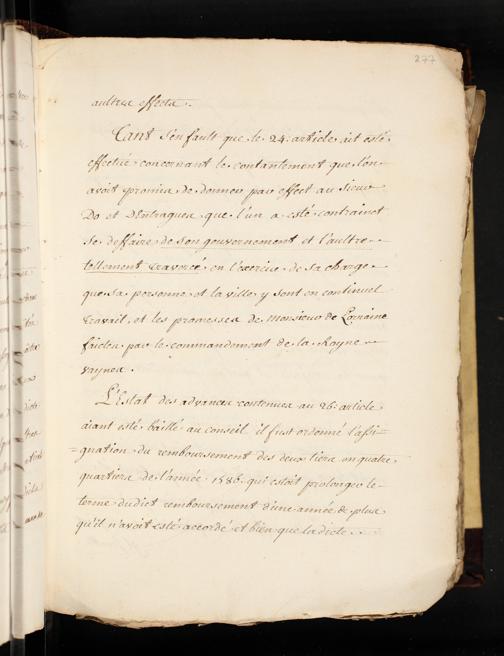 277
aultres effects.
Tant s'en fault que le 24. article ait esté
effectué concernant le contantement que l'on
avoit promis de donner par effect au sieur
Do et Dentragues que l'un a esté contrainct
se deffaire de son gouvernement et l'aultre
tellement traversé en l'exercice de sa charge
que sa personne et la ville y sont en continuel
travail, et les promesses de Monsieur de Lorraine
faictes par le commandement de la Royne
vaynes.
L'Estat des advances contenues au 26. article
aiant esté baillé au conseil il fust ordonné l'assi=
=gnation du remboursement des deux tiers en quatre
quartiers de l'année 1586. qui estoit prolonger le
terme dudict remboursement d'une année de plus
qu'il n'avoit esté accordé et bien que ladicte